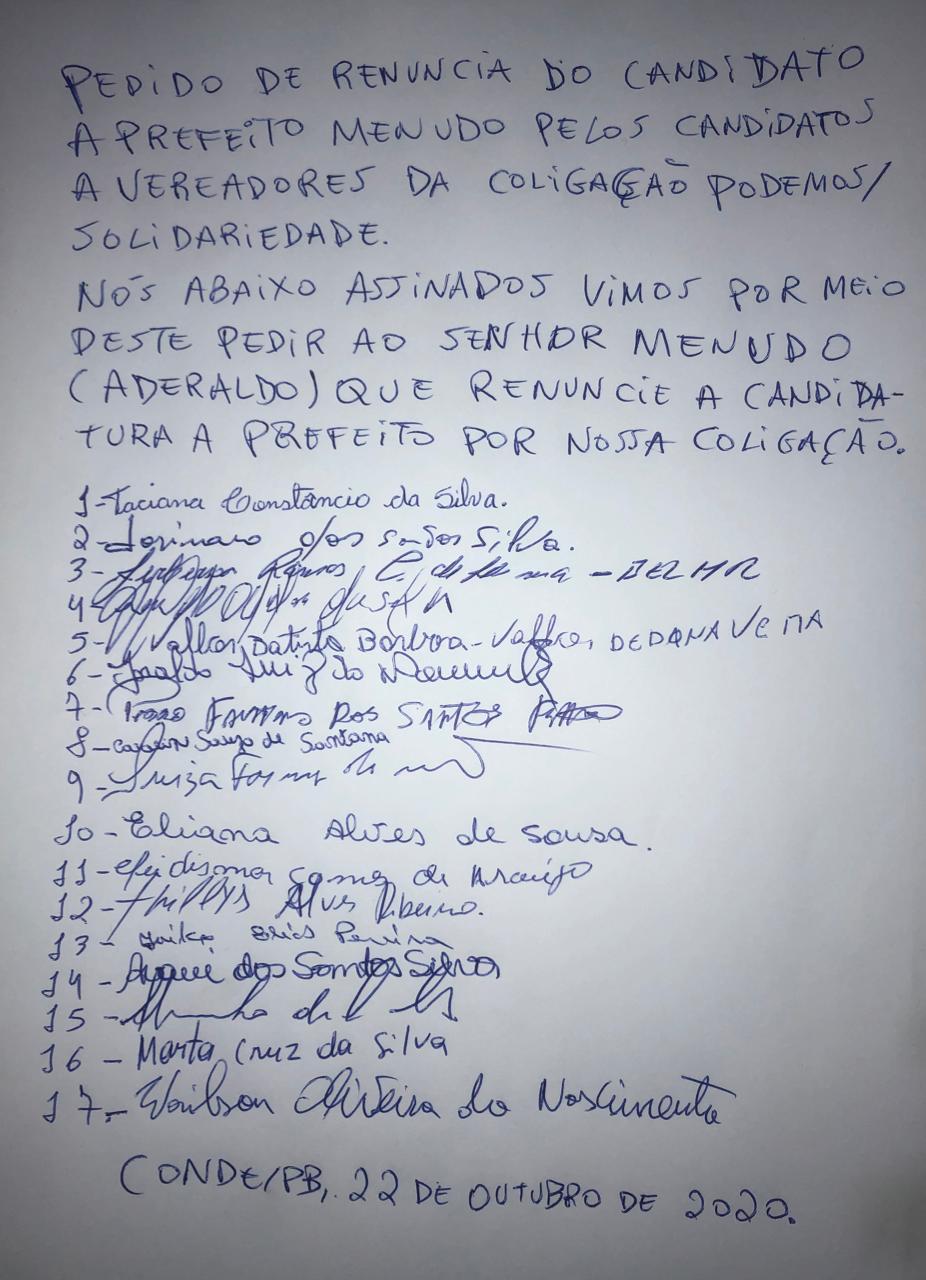 PEDIDO DE RENUNCIA DO CANDIDATO
A PREFEITO MENUDO PELOS CANDIDATOS
A VEREADORES DA COLIGAÇÃO PODEMOS/
SOLIDARIEDADE.
NÓS ABAIXO ASSINADOS VIMOS POR MEIO
DESTE PEDIR AO SENHOR MENUDO
(ADERALDO) QUE RENUNCIE A CANDIDA-
TURA A PREFEITO POR NOSSA COLIGAÇÃO.
1-Taciana Constâncio da Silva.
2- dos Santos Silva.
3- Ramos
4-
5- Batista Barbosa-
6- Luiz do
7- DOS SANTOS
8- Souza de Santana
9- Luiza
10-Eliana Alves de Sousa.
11- Gomes de Araújo
12- Alves Ribeiro.
13- Pereira
14- dos Santos Silva
15-
16-Marta Cruz da Silva
17- Oliveira do Nascimento
CONDE/PB, 22 DE OUTUBRO DE 2020.